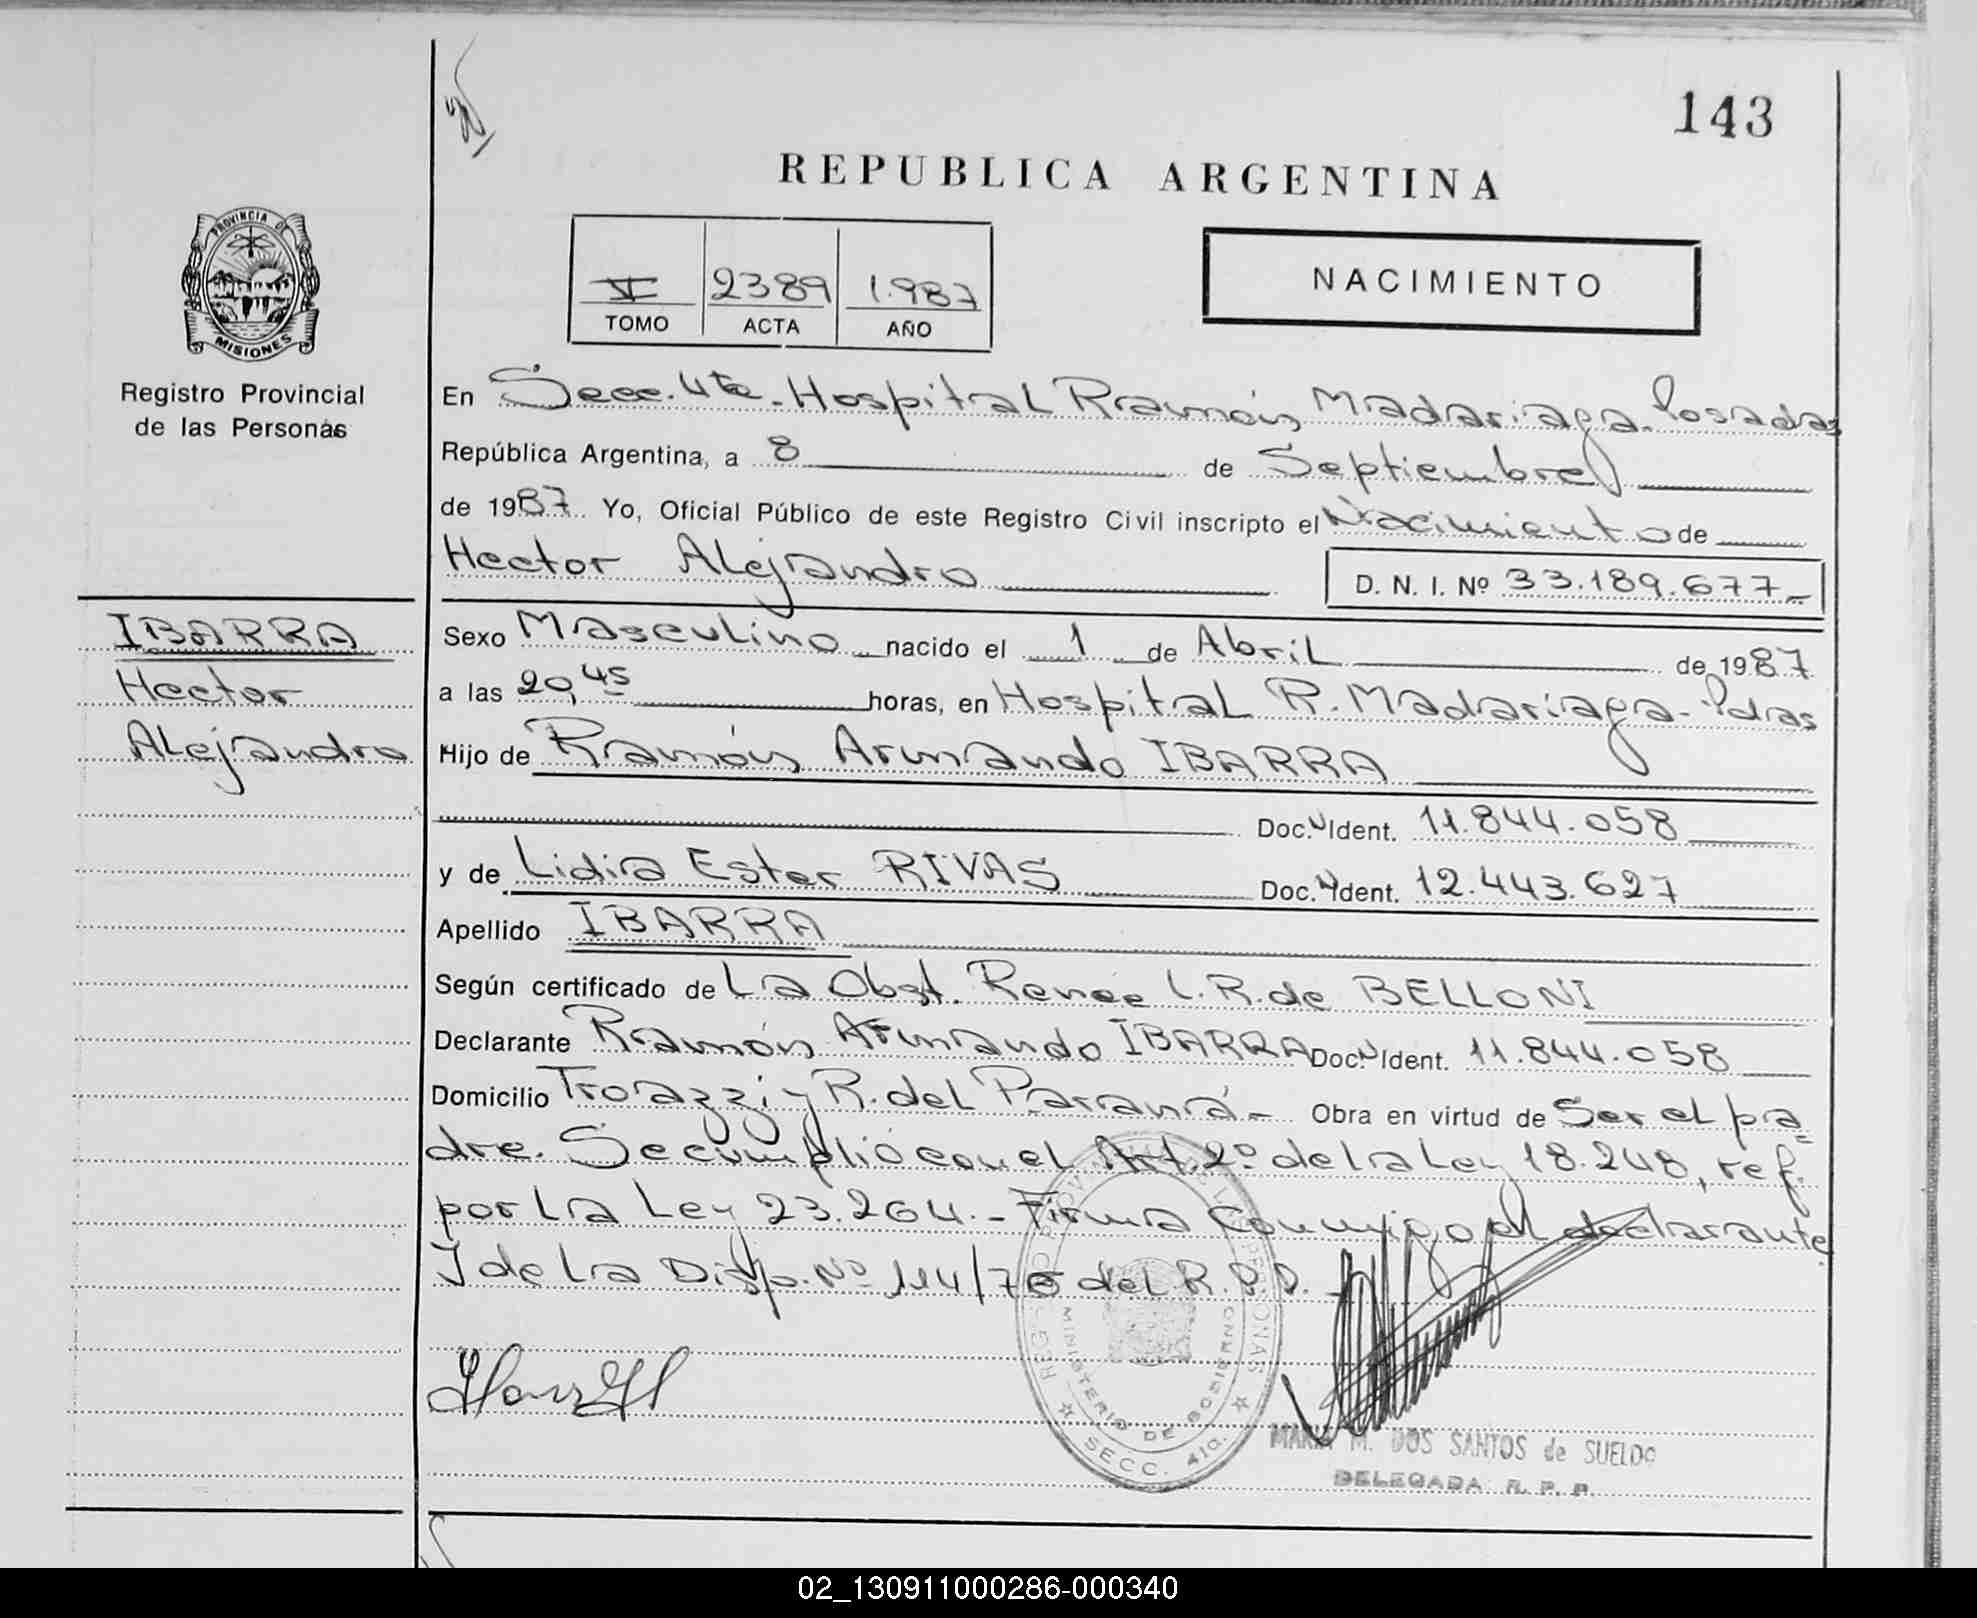 143
REPUBLICA ARGENTINA
PROVINCIA DE
MISIONES
Registro Provincial
de las Personas
2389 1.987
TOMO ACTA AÑO
NACIMIENTO
En Secc. 4ta. Hospital Ramón Madariaga. Posadas
República Argentina, a 8 de Septiembre
de 1987 Yo, Oficial Público de este Registro Civil inscripto el Nacimiento de
Hector Alejandro D. N. I. Nº 33.189.677_
IBARRA
Hector
Alejandro
Sexo Masculino nacido el 1 de Abril de 1987
a las 20,45 horas, en Hospital R. Madariaga - Pdas
Hijo de Ramón Armando IBARRA
Doc. Ident. 11.844.058
y de Lidia Ester RIVAS Doc. Ident. 12.443.627
Apellido IBARRA
Según certificado de La Obst. Renée L. R. de BELLONI
Declarante Ramón Armando IBARRA Doc. Ident. 11.844.058
Domicilio Troazzi y R. del Paraná - Obra en virtud de Ser el pa-
dre. Se cumplió con el Art. 2º de la Ley 18.248, ref.
por la Ley 23.264. - Firma conmigo el declarante
de la Disp. Nº 114/76 del R. P. P.
MINISTERIO DE GOBIERNO
SECC. 4ta.
MARIA M. DOS SANTOS de SUELDO
DELEGADA R. P. P.
02_130911000286-000340